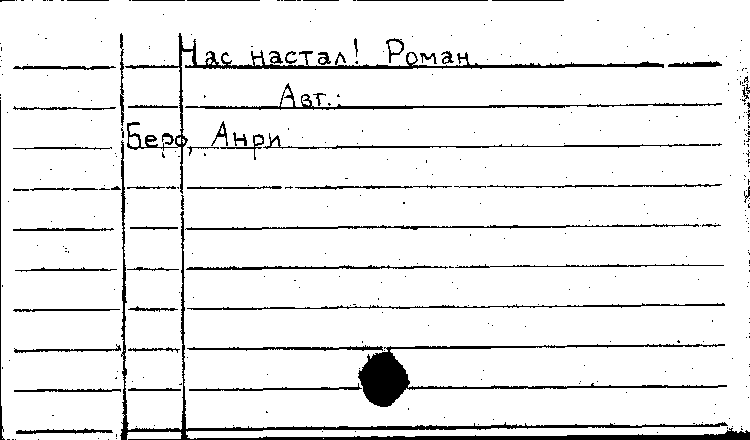 Час настал! Роман.
Авт.:
Беро, Анри